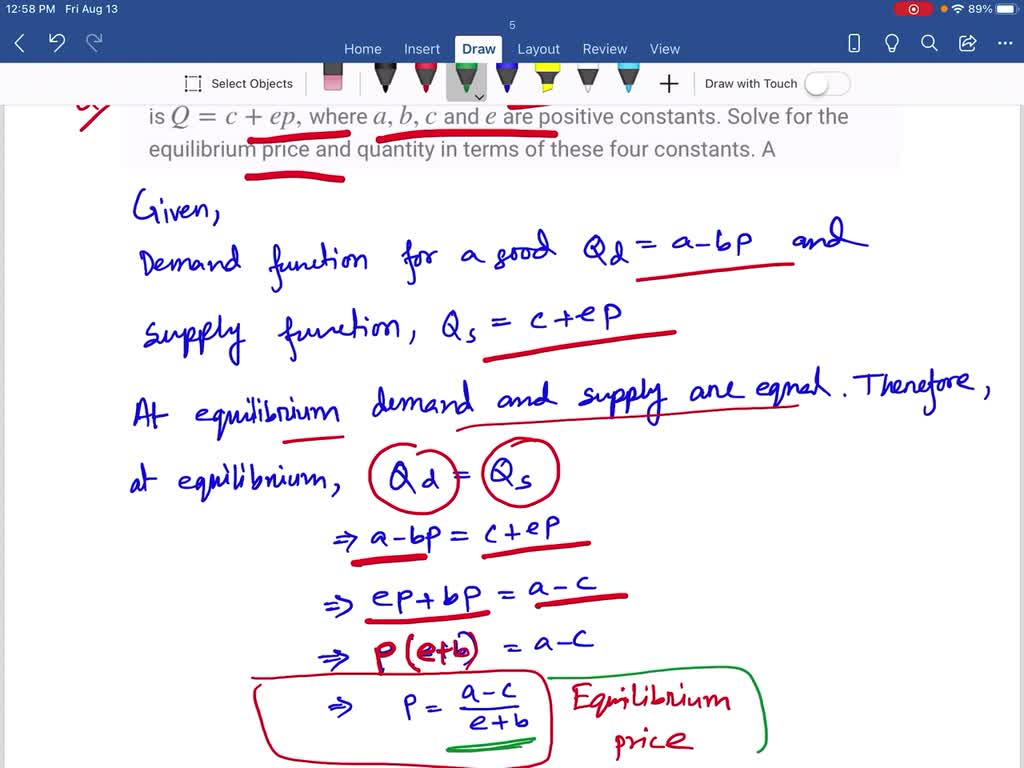 12:58 PM Fri Aug 13
89%
5
Home Insert Draw Layout Review View
Select Objects
Draw with Touch
is Q = c + ep, where a, b, c and e are positive constants. Solve for the
equilibrium price and quantity in terms of these four constants. A
Given,
Demand function for a good Qd = a-bp and
supply function, Qs = c+ep
At equilibrium demand and supply are equal. Therefore,
at equilibrium, Qd = Qs
⇒ a-bp = c+ep
⇒ ep+bp = a-c
⇒ p(e+b) = a-c
⇒ p = a-c / e+b Equilibrium
price